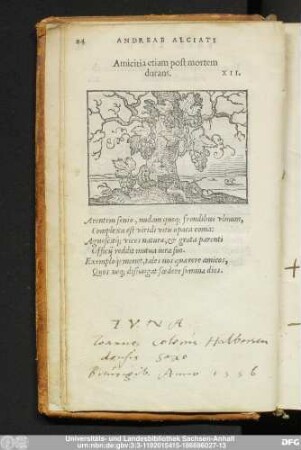 24 ANDREAE ALCIATI
Amicitia etiam post mortem
durans. XII.
Arentem senio, nudam quoq; frondibus vlmum,
Complexa est viridi vitis opaca coma:
Agnoscitq; vices naturæ, & grata parenti
Officij reddit mutua iura suo.
Exemploq; monet, tales nos quærere amicos,
Quos neq; disiungat fœdere summa dies.
Joannes
Saxo
Anno
Universitäts- und Landesbibliothek Sachsen-Anhalt
urn:nbn:de:gbv:3:3-1192015415-186696027-13
DFG